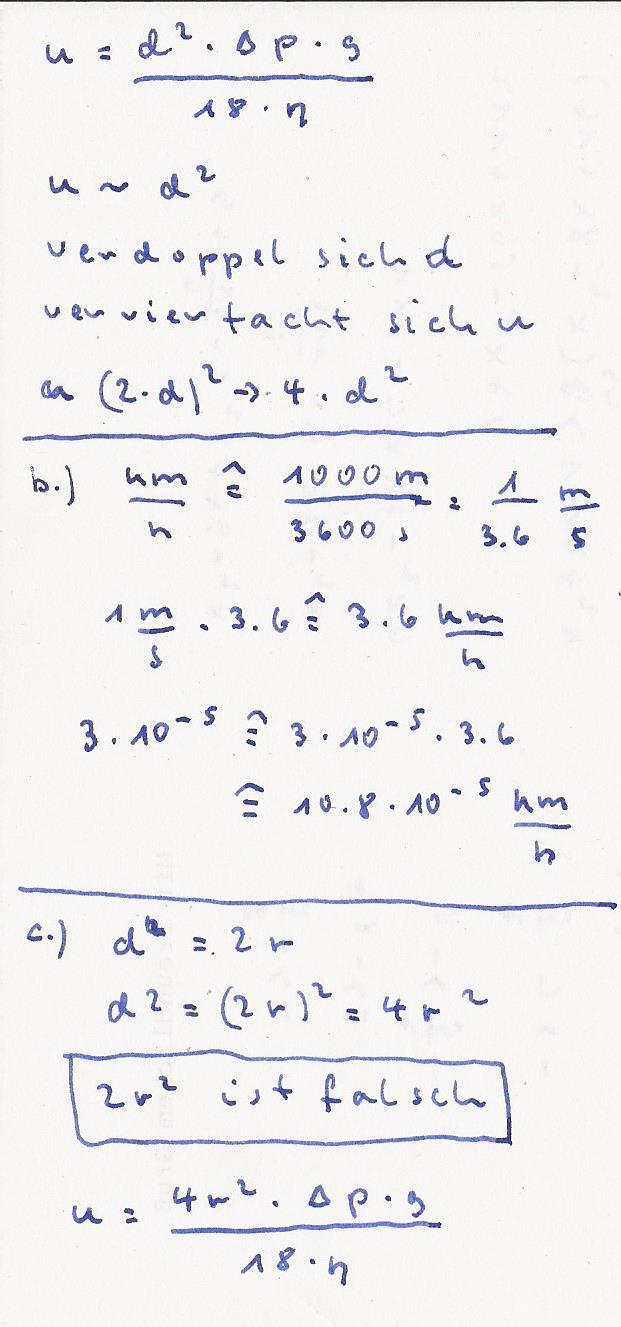 u = d² · Δp · g
18 · η
u ~ d²
verdoppel sich d
vervierfacht sich u
(2·d)² → 4 · d²
b.) km/h ≙ 1000 m / 3600 s = 1/3.6 m/s
1 m/s · 3.6 ≙ 3.6 km/h
3 · 10⁻⁵ ≙ 3 · 10⁻⁵ · 3.6
≙ 10.8 · 10⁻⁵ km/h
c.) d = 2r
d² = (2r)² = 4r²
2r² ist falsch
u = 4r² · Δp · g
18 · η